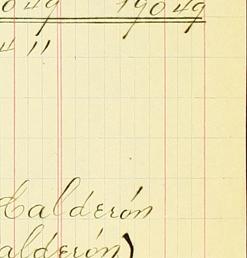 049 19049
4 11
Calderón
alderón)